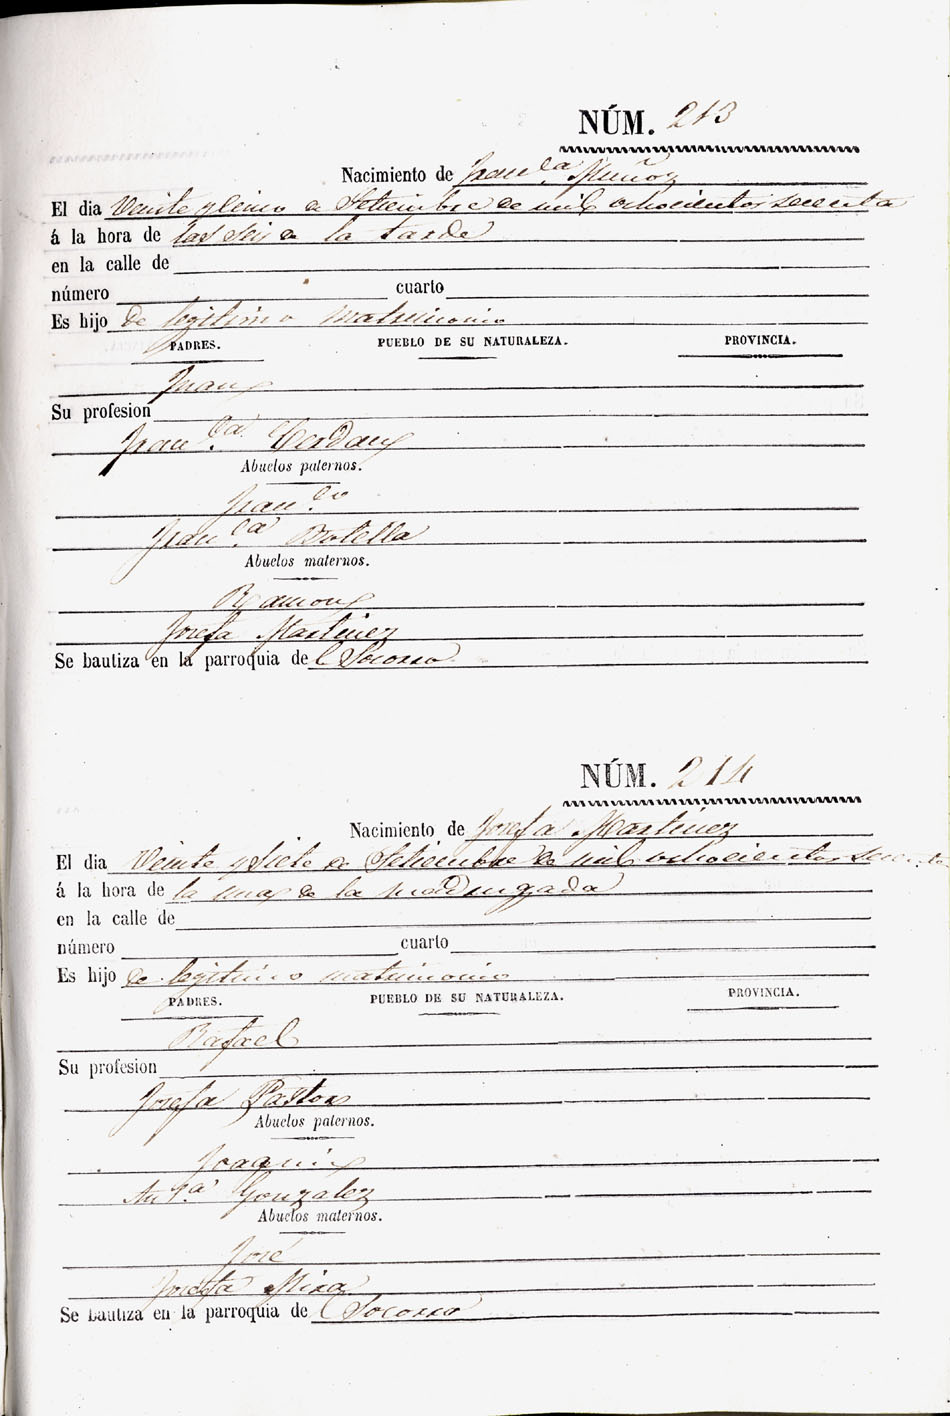 NÚM. 213
Nacimiento de Fran.ca Muñoz
El dia Veinte y Cinco de Setiembre de mil ochocientos sesenta
á la hora de las seis de la tarde
en la calle de
número cuarto
Es hijo de legitimo matrimonio
PADRES. PUEBLO DE SU NATURALEZA. PROVINCIA.
Juan
Su profesion
Fran.ca Cerdan
Abuelos paternos.
Fran.co
Fran.ca Botella
Abuelos maternos.
Ramon
Josefa Martinez
Se bautiza en la parroquia de l Socorro
NÚM. 214
Nacimiento de Josefa Martinez
El dia Veinte y Siete de Setiembre de mil ochocientos sesenta
á la hora de la una de la madrugada
en la calle de
número cuarto
Es hijo de legitimo matrimonio
PADRES. PUEBLO DE SU NATURALEZA. PROVINCIA.
Rafael
Su profesion
Josefa Pastor
Abuelos paternos.
Joaquin
Ant.a Gonzalez
Abuelos maternos.
José
Josefa Mira
Se bautiza en la parroquia de l Socorro